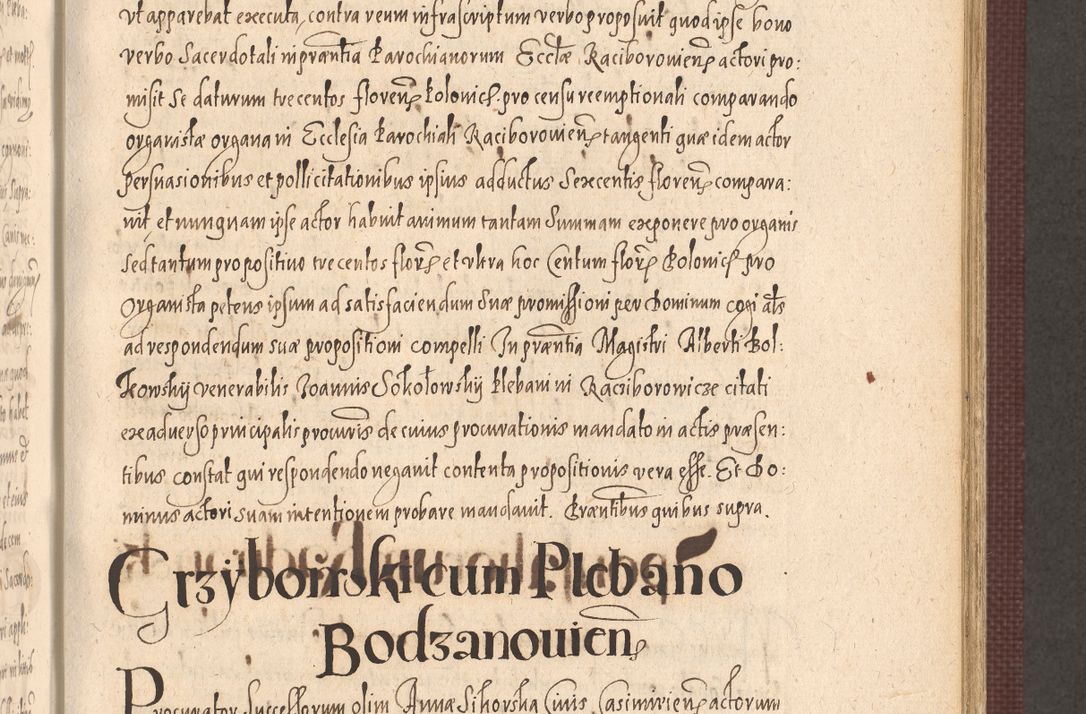 vt apparebat executa, contra reum infrascriptum verbo proposuit quod ipse bono
verbo Sacerdotali in præntia Parochianorum Ecclæ Raciborouien actori pro:
misit se daturum trecentos floren Polonic. pro censu reemptionali comparando
organistæ organa in Ecclesia Parochiali Raciborouien tangenti quæ idem actor
persuasionibus et pollicitationibus ipsius adductus Sexcentis floren compara:
uit et nunquam ipse actor habuit animum tantam Summam exponere pro organis
Sed tantum propositiuo trecentos flor et vltra hoc Centum flor Polonic pro
Organista petens ipsum ad satisfaciendum Suæ promissioni per Dominum cogi als
ad respondendum suæ propositioni compelli In præntia Magistri Alberti Bol:
kowskij venerabilis Joannis Sokołowskij Plebani in Racziborowicze citati
ex aduerso principalis procuris de cuius procurationis mandato in actis præsen:
tibus constat qui respondendo negauit contenta propositionis vera esse. Et Do:
minus actori suam intentionem probare mandauit. Præntibus quibus supra.
Grzybowski cum Plebano
Bodzanouien
Procurator Successorum olim Annæ Sikorska Ciuis Casimirien actorum